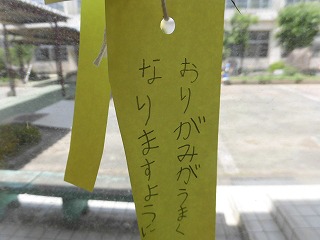 おりがみがうまく
なりますように